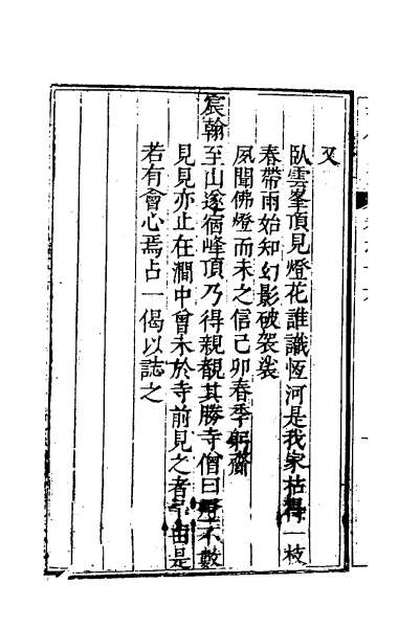 又
臥雲峯頂見燈花誰識恆河是我家枯得一枝
春帶雨始知幻影破袈裟
夙聞佛燈而未之信己卯春季躬齋
宸翰至山遂宿峰頂乃得親覩其勝寺僧曰燈不數
見見亦止在澗中曾未於寺前見之者 由是
若有會心焉占一偈以誌之